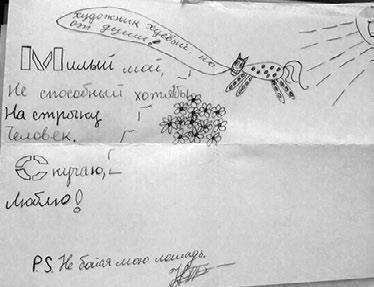 художник хуевый но
от души!
Милый мой,
Не способный хотя бы
На строчку
Человек.
Скучаю,
Люблю!
P.S. Не бойся мою лошадь.